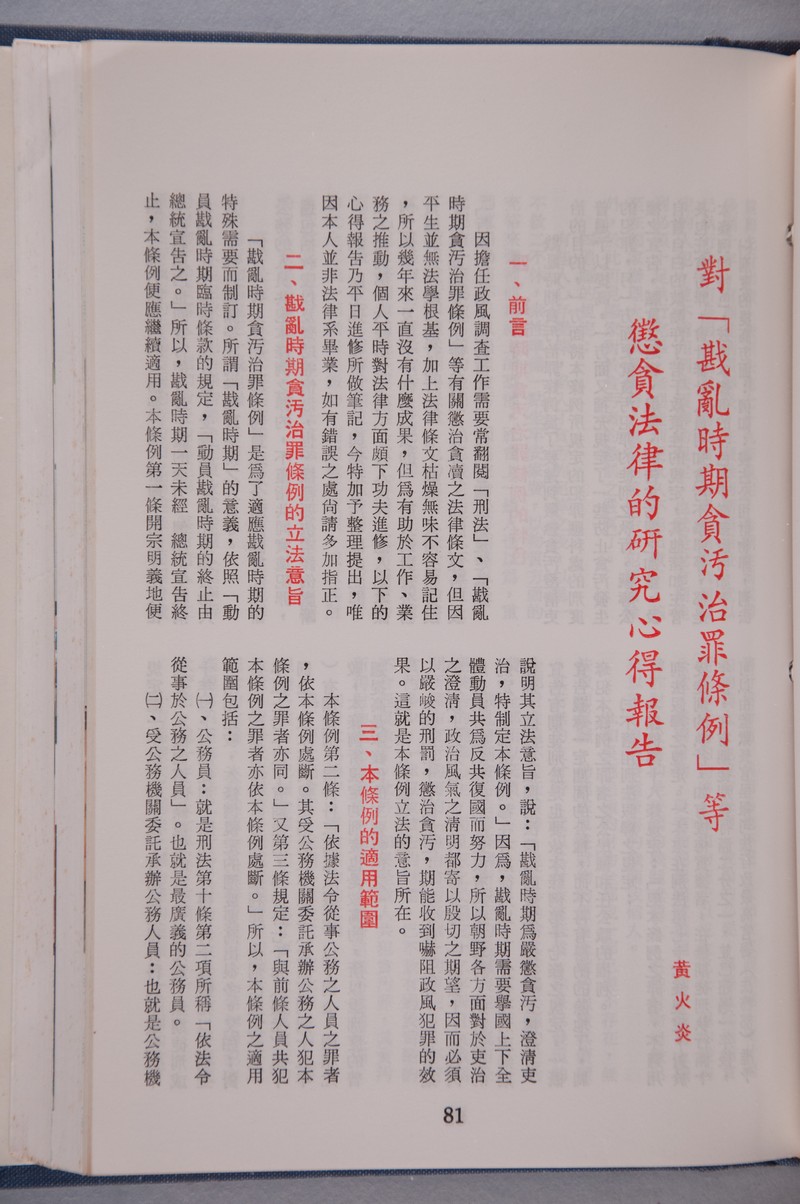 對「戡亂時期貪汚治罪條例」等
懲貪法律的研究心得報告
黃火炎
一、前言
因擔任政風調查工作需要常翻閱「刑法」、「戡亂
時期貪汚治罪條例」等有關懲治貪瀆之法律條文，但因
平生並無法學根基，加上法律條文枯燥無味不容易記住
，所以幾年來一直沒有什麼成果，但爲有助於工作、業
務之推動，個人平時對法律方面頗下功夫進修，以下的
心得報告乃平日進修所做筆記，今特加予整理提出，唯
因本人並非法律系畢業，如有錯誤之處尙請多加指正。
二、戡亂時期貪汚治罪條例的立法意旨
「戡亂時期貪汚治罪條例」是爲了適應戡亂時期的
特殊需要而制訂。所謂「戡亂時期」的意義，依照「動
員戡亂時期臨時條款的規定，「動員戡亂時期的終止由
總統宣告之。」所以，戡亂時期一天未經　總統宣告終
止，本條例便應繼續適用。本條例第一條開宗明義地便
說明其立法意旨，說：「戡亂時期爲嚴懲貪汚，澄淸吏
治，特制定本條例。」因爲，戡亂時期需要擧國上下全
體動員共爲反共復國而努力，所以朝野各方面對於吏治
之澄淸，政治風氣之淸明都寄以殷切之期望，因而必須
以嚴峻的刑罰，懲治貪汚，期能收到嚇阻政風犯罪的效
果。這就是本條例立法的意旨所在。
三、本條例的適用範圍
本條例第二條：「依據法令從事公務之人員之罪者
，依本條例處斷。其受公務機關委託承辦公務之人犯本
條例之罪者亦同。」又第三條規定：「與前條人員共犯
本條例之罪者亦依本條例處斷。」所以，本條例之適用
範圍包括：
㈠、公務員：就是刑法第十條第二項所稱「依法令
從事於公務之人員」。也就是最廣義的公務員。
㈡、受公務機關委託承辦公務人員：也就是公務機
81